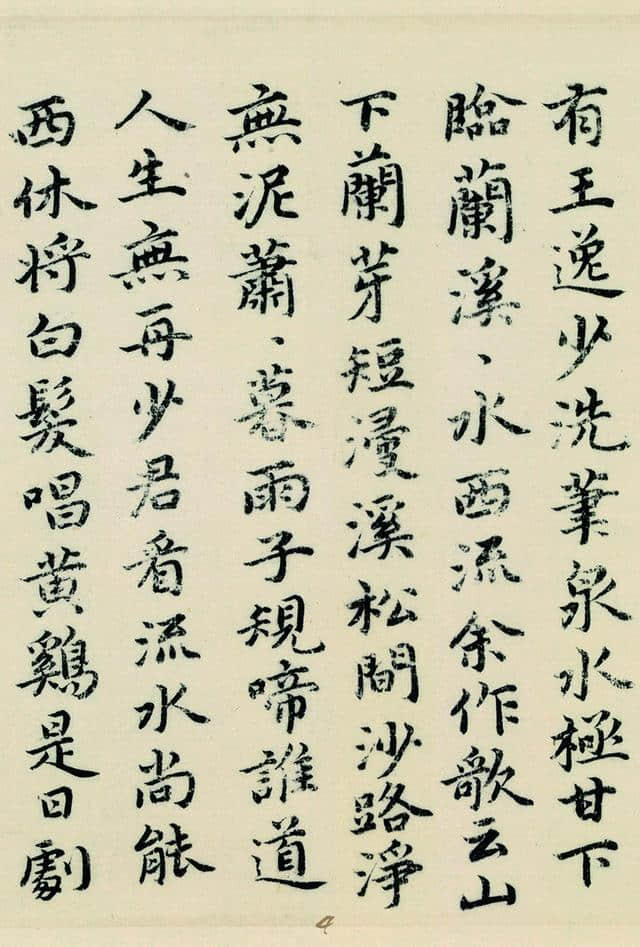 有王逸少洗筆泉水極甘下
臨蘭溪、水西流余作歌云山
下蘭芽短浸溪松間沙路淨
無泥蕭、暮雨子規啼誰道
人生無再少君看流水尚能
西休将白髮唱黄鷄是日劇
4